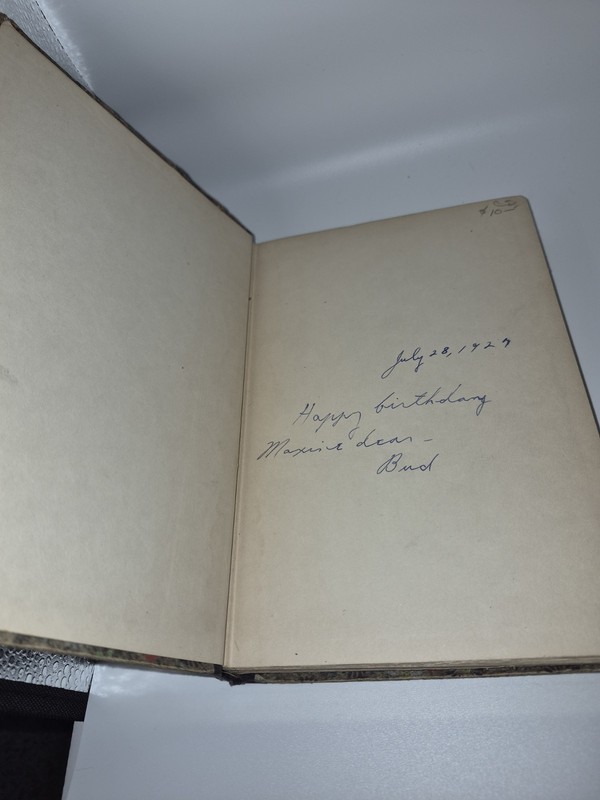 $10—
July 28, 1929
Happy birthday
Maxine dear -
Bud